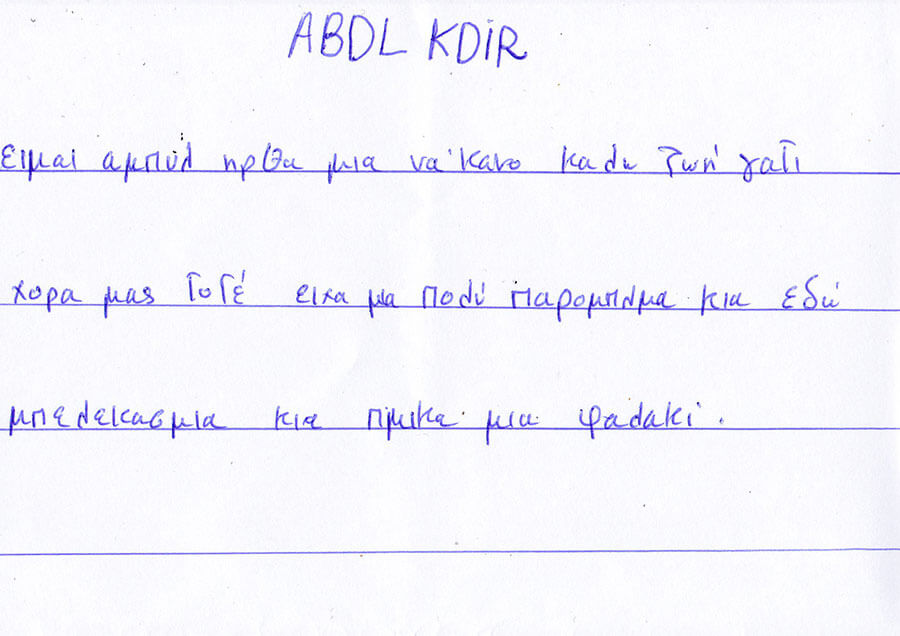 ABDL KDiR
ειμαι αμπυλ ηρθα μια να κανο καλυ ζωή γατι
χορα μας τοτέ ειχα μα πολύ παρομπλμα κια εδώ
μπελεκασμια κια πμικα μια φαλακι.